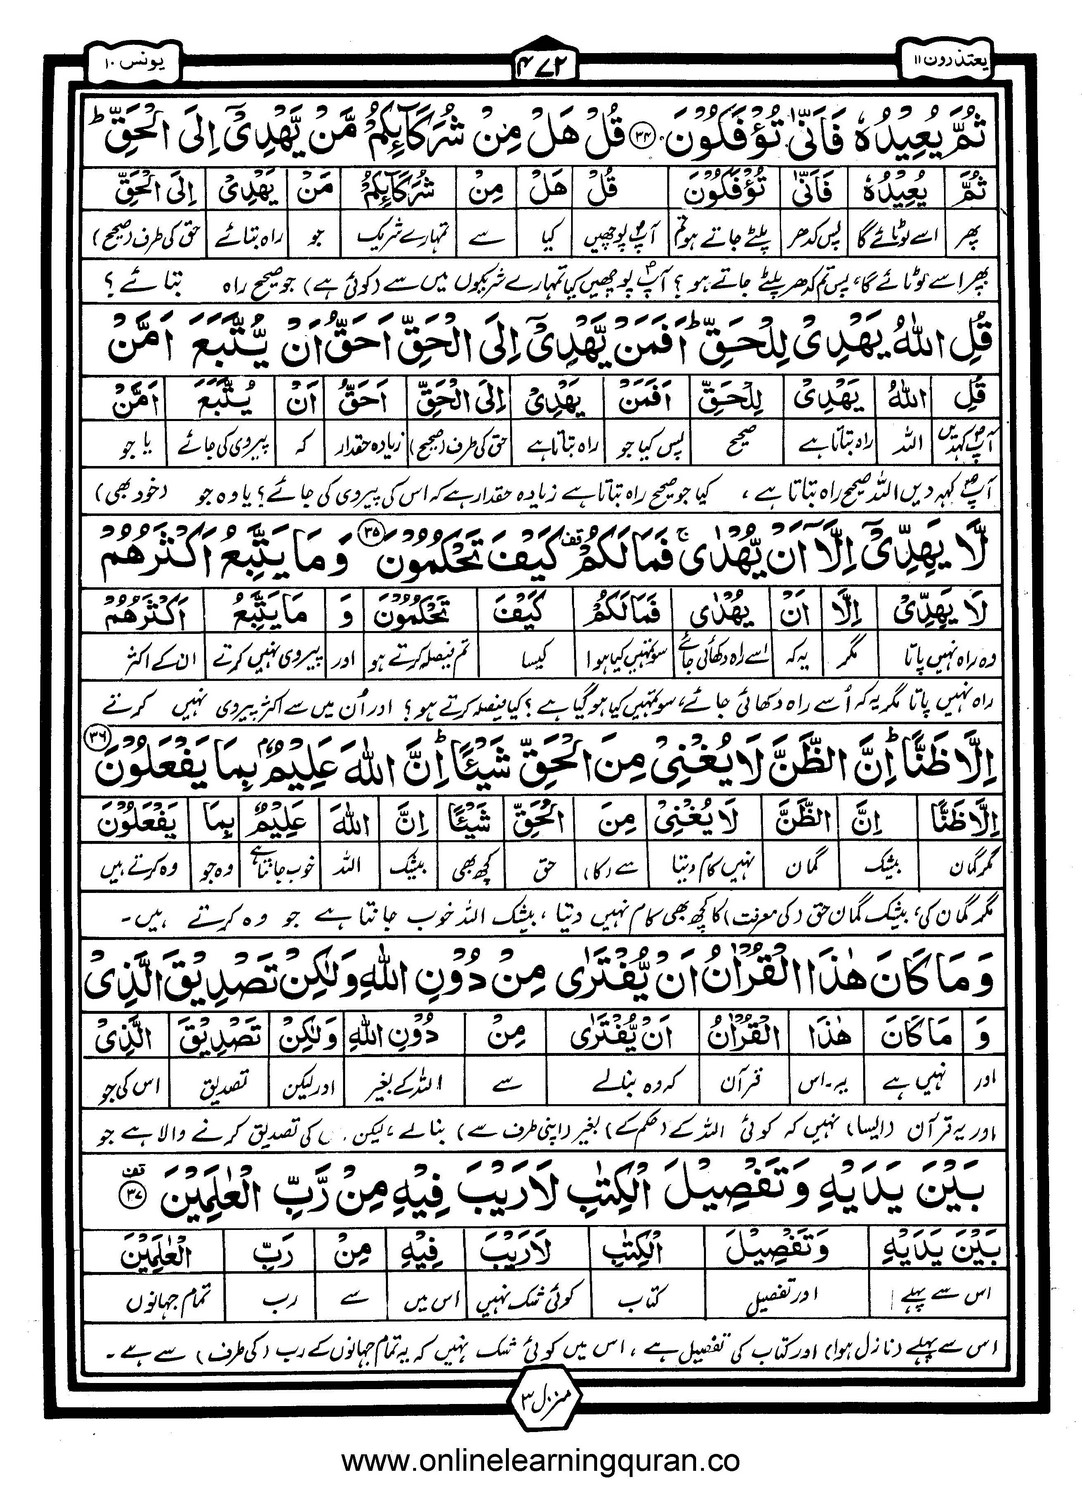 یعتذرون ۱۱
۴۷۲
یونس ۱۰
ثُمَّ یُعِیْدُهٗ فَاَنّٰی تُؤْفَكُوْنَ ﴿۳۴﴾ قُلْ هَلْ مِنْ شُرَكَآىِٕكُمْ مَّنْ یَّهْدِیْۤ اِلَی الْحَقِّ ؕ
ثُمَّ یُعِیْدُهٗ فَاَنّٰی تُؤْفَكُوْنَ قُلْ هَلْ مِنْ شُرَكَآىِٕكُمْ مَنْ یَهْدِیْ اِلَی الْحَقِّ
پھر اسے لوٹائے گا پس کدھر پلٹے جاتے ہو تم آپؐ پوچھیں کیا سے تمہارے شریک جو راہ بتائے حق کی طرف (صحیح)
پھر اسے لوٹائے گا، پس تم کدھر پلٹے جاتے ہو؟ آپؐ پوچھیں کیا تمہارے شریکوں میں سے (کوئی ہے) جو صحیح راہ بتائے؟
قُلِ اللّٰهُ یَهْدِیْ لِلْحَقِّ ؕ اَفَمَنْ یَّهْدِیْۤ اِلَی الْحَقِّ اَحَقُّ اَنْ یُّتَّبَعَ اَمَّنْ
قُلِ اللّٰهُ یَهْدِیْ لِلْحَقِّ اَفَمَنْ یَهْدِیْ اِلَی الْحَقِّ اَحَقُّ اَنْ یُتَّبَعَ اَمَّنْ
آپؐ کہدیں اللہ راہ بتاتا ہے صحیح پس کیا جو راہ بتاتا ہے حق کی طرف (صحیح) زیادہ حقدار کہ پیروی کی جائے یا جو
آپؐ کہہ دیں اللہ صحیح راہ بتاتا ہے، کیا جو صحیح راہ بتاتا ہے زیادہ حقدار ہے کہ اس کی پیروی کی جائے؟ یا وہ جو (خود بھی)
لَّا یَهِدِّیْۤ اِلَّاۤ اَنْ یُّهْدٰی ۚ فَمَا لَكُمْ ۫ كَیْفَ تَحْكُمُوْنَ ﴿۳۵﴾ وَمَا یَتَّبِعُ اَكْثَرُهُمْ
لَا یَهِدِّیْ اِلَّا اَنْ یُهْدٰی فَمَا لَكُمْ كَیْفَ تَحْكُمُوْنَ وَ مَا یَتَّبِعُ اَكْثَرُهُمْ
وہ راہ نہیں پاتا مگر یہ کہ اسے راہ دکھائی جائے سو تمہیں کیا ہوا کیسا تم فیصلہ کرتے ہو اور پیروی نہیں کرتے ان کے اکثر
راہ نہیں پاتا مگر یہ کہ اُسے راہ دکھائی جائے، سو تمہیں کیا ہو گیا ہے؟ کیا فیصلہ کرتے ہو؟ اور اُن میں سے اکثر پیروی نہیں کرتے
اِلَّا ظَنًّا ؕ اِنَّ الظَّنَّ لَا یُغْنِیْ مِنَ الْحَقِّ شَیْـًٔا ؕ اِنَّ اللّٰهَ عَلِیْمٌۢ بِمَا یَفْعَلُوْنَ ﴿۳۶﴾
اِلَّا ظَنًّا اِنَّ الظَّنَّ لَا یُغْنِیْ مِنَ الْحَقِّ شَیْـًٔا اِنَّ اللّٰهَ عَلِیْمٌۢ بِمَا یَفْعَلُوْنَ
مگر گمان بیشک گمان نہیں کام دیتا سے (کا) حق کچھ بھی بیشک اللہ خوب جانتا ہے وہ جو وہ کرتے ہیں
مگر گمان کی، بیشک گمان حق (کی معرفت) کا کچھ بھی کام نہیں دیتا، بیشک اللہ خوب جانتا ہے جو وہ کرتے ہیں۔
وَمَا كَانَ هٰذَا الْقُرْاٰنُ اَنْ یُّفْتَرٰی مِنْ دُوْنِ اللّٰهِ وَلٰكِنْ تَصْدِیْقَ الَّذِیْ
وَ مَا كَانَ هٰذَا الْقُرْاٰنُ اَنْ یُفْتَرٰی مِنْ دُوْنِ اللّٰهِ وَلٰكِنْ تَصْدِیْقَ الَّذِیْ
اور نہیں ہے یہ۔ اس قرآن کہ وہ بنالے سے اللہ کے بغیر اور لیکن تصدیق اس کی جو
اور یہ قرآن (ایسا) نہیں کہ کوئی اللہ کے (حکم کے) بغیر (اپنی طرف سے) بنالے، لیکن کی تصدیق کرنے والا ہے جو
بَیْنَ یَدَیْهِ وَتَفْصِیْلَ الْكِتٰبِ لَا رَیْبَ فِیْهِ مِنْ رَّبِّ الْعٰلَمِیْنَ ﴿۳۷﴾ قف
بَیْنَ یَدَیْهِ وَتَفْصِیْلَ الْكِتٰبِ لَا رَیْبَ فِیْهِ مِنْ رَبِّ الْعٰلَمِیْنَ
اس سے پہلے اور تفصیل کتاب کوئی شک نہیں اس میں سے رب تمام جہانوں
اس سے پہلے (نازل ہوا) اور کتاب کی تفصیل ہے، اس میں کوئی شک نہیں کہ یہ تمام جہانوں کے رب (کی طرف) سے ہے۔
منزل ۳
www.onlinelearningquran.co